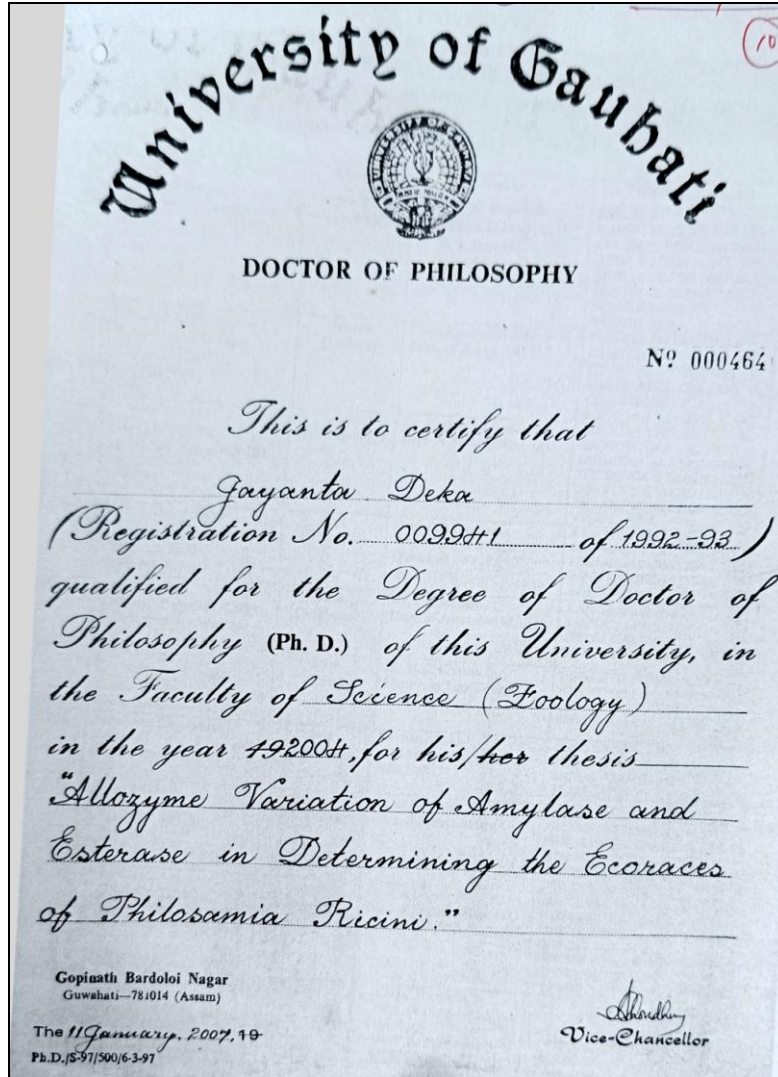 10
University of Gauhati
DOCTOR OF PHILOSOPHY
Nº 000464
This is to certify that
Jayanta Deka
(Registration No. 009941 of 1992-93)
qualified for the Degree of Doctor of
Philosophy (Ph. D.) of this University, in
the Faculty of Science (Zoology)
in the year 192004, for his/her thesis
"Allozyme Variation of Amylase and
Esterase in Determining the Ecoraces
of Philosamia Ricini."
Gopinath Bardoloi Nagar
Guwahati—781014 (Assam)
The 11 January, 2007, 19
Vice-Chancellor
Ph.D./S-97/500/6-3-97